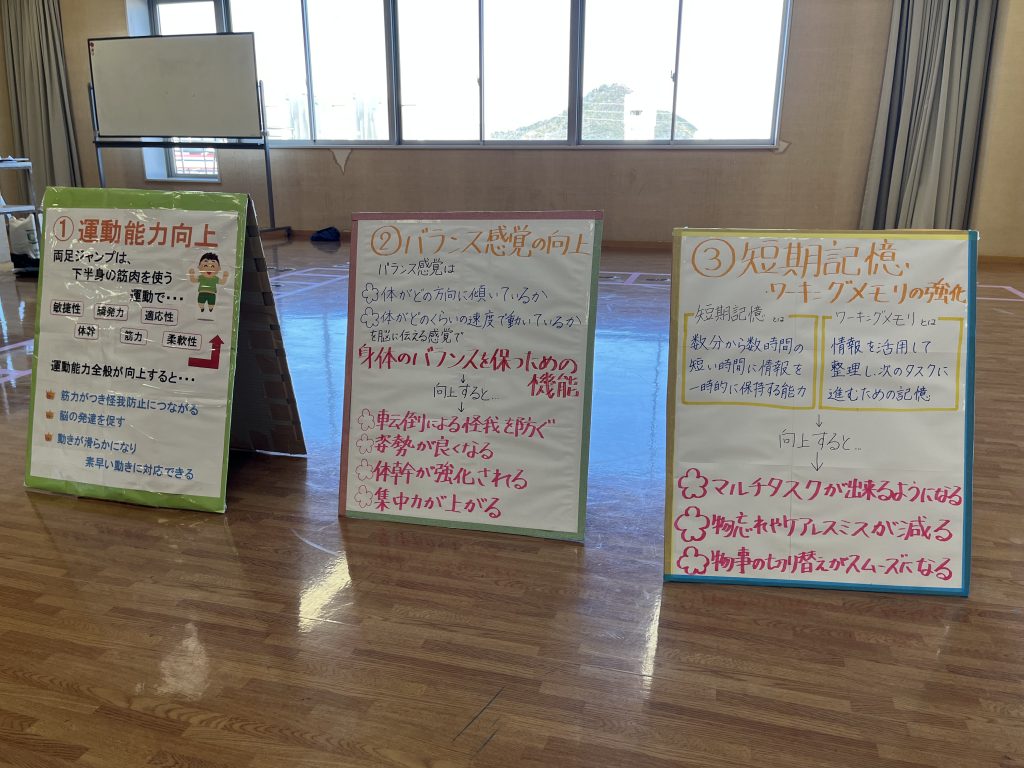 ①運動能力向上
両足ジャンプは、
下半身の筋肉を使う
運動で・・・
敏捷性 瞬発力 適応性
体幹 筋力 柔軟性
運動能力全般が向上すると・・・
筋力がつき怪我防止につながる
脳の発達を促す
動きが滑らかになり
素早い動きに対応できる
②バランス感覚の向上
バランス感覚は
体がどの方向に傾いているか
体がどのくらいの速度で動いているか
を脳に伝える感覚で
身体のバランスを保つための
機能
↓
向上すると…
↓
転倒による怪我を防ぐ
姿勢が良くなる
体幹が強化される
集中力が上がる
③短期記憶、
ワーキングメモリの強化
短期記憶とは
数分から数時間の
短い時間に情報を
一時的に保持する能力
ワーキングメモリとは
情報を活用して
整理し、次のタスクに
進むための記憶
↓
向上すると…
↓
マルチタスクが出来るようになる
物忘れやケアレスミスが減る
物事の切り替えがスムーズになる